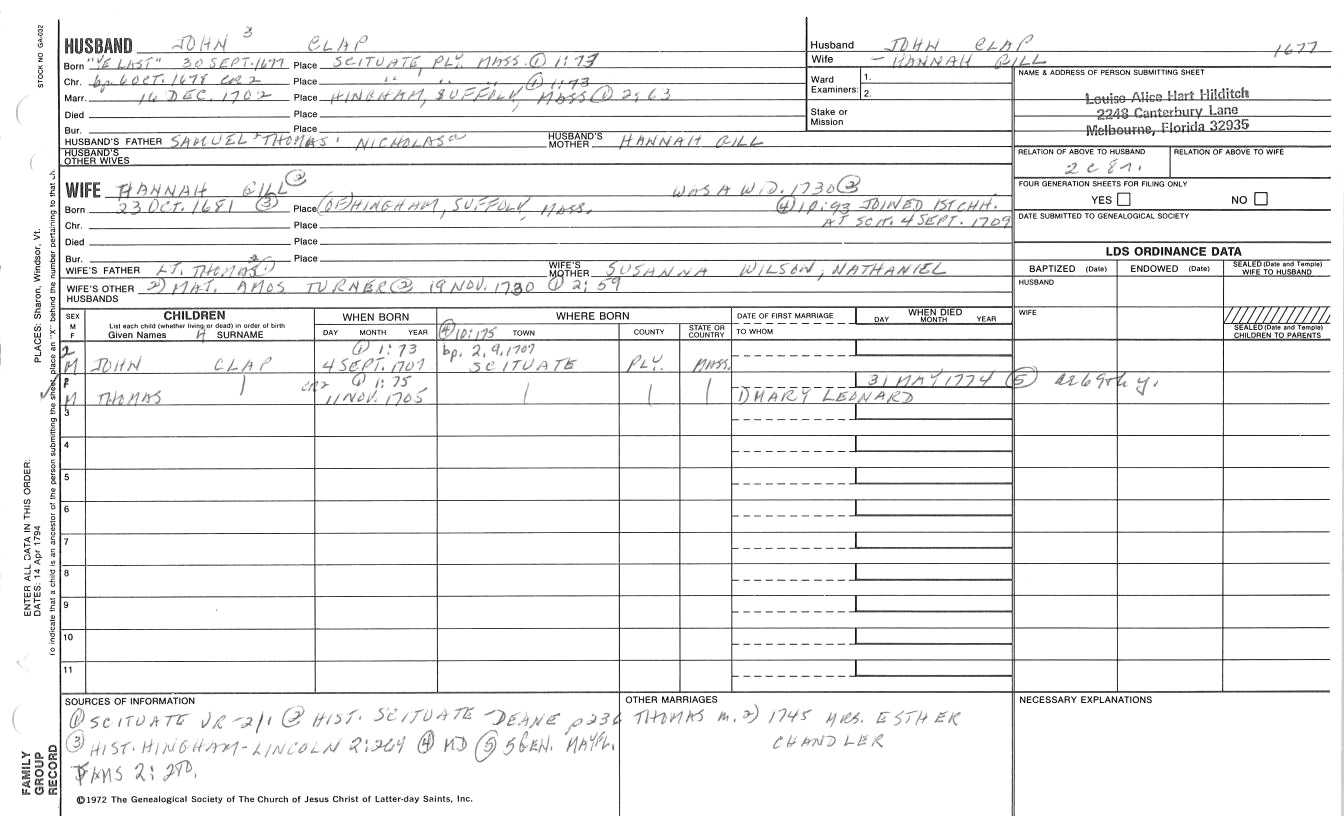 STOCK NO GA-002
HUSBAND JOHN 3 CLAP
Born "YE LAST" 30 SEPT. 1677 Place SCITUATE, PLY. MASS. ① 1:73
Chr. bp 6 OCT. 1678 CR2 Place " " " " ① 1:73
Marr. 16 DEC. 1702 Place HINGHAM, SUFFOLK, MASS ① 2:63
Died Place
Bur. Place
HUSBAND'S FATHER SAMUEL 2 THOMAS 1 NICHOLAS HUSBAND'S MOTHER HANNAH GILL
HUSBAND'S OTHER WIVES
Husband JOHN CLAP 1677
Wife - HANNAH GILL
Ward Examiners: 1.
2.
Stake or Mission
NAME & ADDRESS OF PERSON SUBMITTING SHEET
Louise Alice Hart Hilditch
2248 Canterbury Lane
Melbourne, Florida 32935
RELATION OF ABOVE TO HUSBAND RELATION OF ABOVE TO WIFE
2c 8r.
FOUR GENERATION SHEETS FOR FILING ONLY
YES NO
DATE SUBMITTED TO GENEALOGICAL SOCIETY
WIFE HANNAH GILL ③ WAS A WD. 1730 ②
Born 23 OCT. 1681 ③ Place (OF) HINGHAM, SUFFOLK, MASS. ④ 10:93 JOINED 1ST CHH.
Chr. Place AT SCIT. 4 SEPT. 1709
Died Place
Bur. Place
WIFE'S FATHER LT. THOMAS 2 WIFE'S MOTHER SUSANNA WILSON, NATHANIEL
WIFE'S OTHER HUSBANDS 2) MAT. AMOS TURNER ② 19 NOV. 1730 ① 2:59
LDS ORDINANCE DATA
BAPTIZED (Date) ENDOWED (Date) SEALED (Date and Temple) WIFE TO HUSBAND
HUSBAND
WIFE
SEALED (Date and Temple) CHILDREN TO PARENTS
SEX M F CHILDREN WHEN BORN WHERE BORN DATE OF FIRST MARRIAGE WHEN DIED
List each child (whether living or dead) in order of birth
Given Names SURNAME DAY MONTH YEAR ④ 10:175 TOWN COUNTY STATE OR COUNTRY TO WHOM DAY MONTH YEAR
2 ① 1:73 bp. 2.9.1707
M JOHN CLAP 4 SEPT. 1707 SCITUATE PLY. MASS.
CR2 ① 1:75 31 MAY 1774 ⑤ ae 69th y.
M THOMAS 11 NOV. 1705 1) MARY LEONARD
3
4
5
6
7
8
9
10
11
SOURCES OF INFORMATION
① SCITUATE VR - 2/1 ② HIST. SCITUATE - DEANE p 236
③ HIST. HINGHAM - LINCOLN 2:264 ④ MD ⑤ 5 GEN. MAYFL.
FAMS 2:
OTHER MARRIAGES
THOMAS m. 2) 1745 MRS. ESTHER
CHANDLER
NECESSARY EXPLANATIONS
©1972 The Genealogical Society of The Church of Jesus Christ of Latter-day Saints, Inc.
PLACES: Sharon, Windsor, Vt.
ENTER ALL DATA IN THIS ORDER:
DATES: 14 Apr 1794
To indicate that a child is an ancestor of the person submitting the sheet, place an "X" behind the number pertaining to that
FAMILY GROUP RECORD